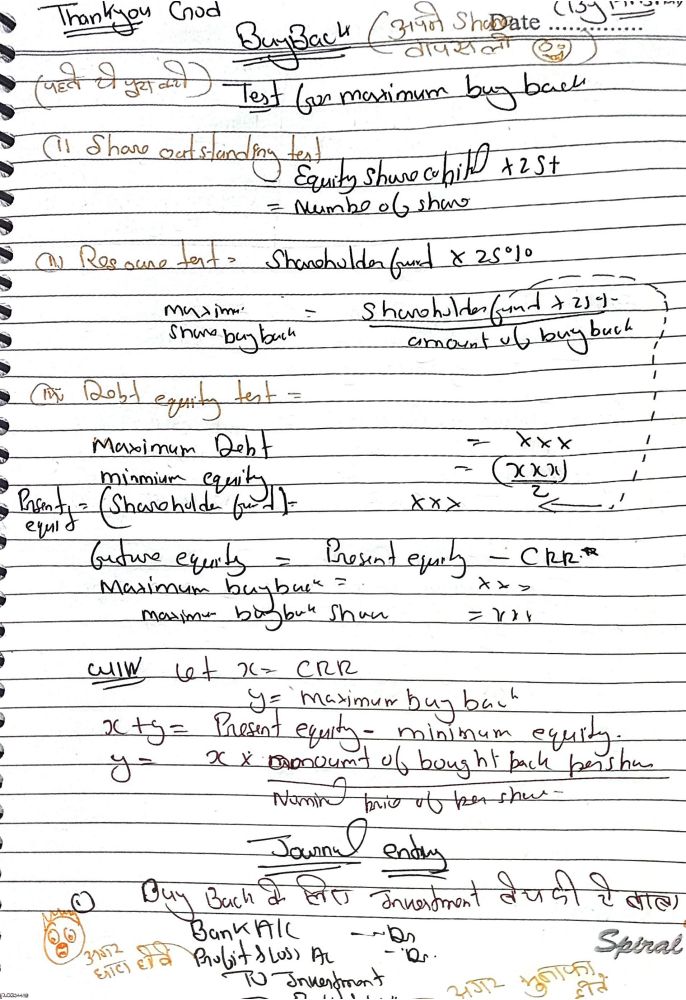 Thankyou God
Date ..............
BuyBack (अपने Share वापस लो)
Test for maximum buy back
(i) Share outstanding test
Equity share capital x 25%
= Number of share
(ii) Resource test = Shareholder fund x 25%
maximum share buy back = Shareholder fund x 25% / amount of buyback
(iii) Debt equity test =
Maximum Debt = xxx
minmium equity = (xxx) / 2
Present equity = (Shareholder fund) - xxx
future equity = Present equity - CRR
Maximum buyback = xxx
maximum buyback share = xxx
W/W let x = CRR
y = maximum buy back
x + y = Present equity - minimum equity.
y = x x amount of bought back per share
Nominal price of per share
Journal entry
(1) Buy Back के लिए Investment बेचने से वाला
Bank A/C ---Dr
Profit & Loss Ac - Dr.
To Investment
अगर घाटा होवे
अगर मुनाफा होवे
Spiral